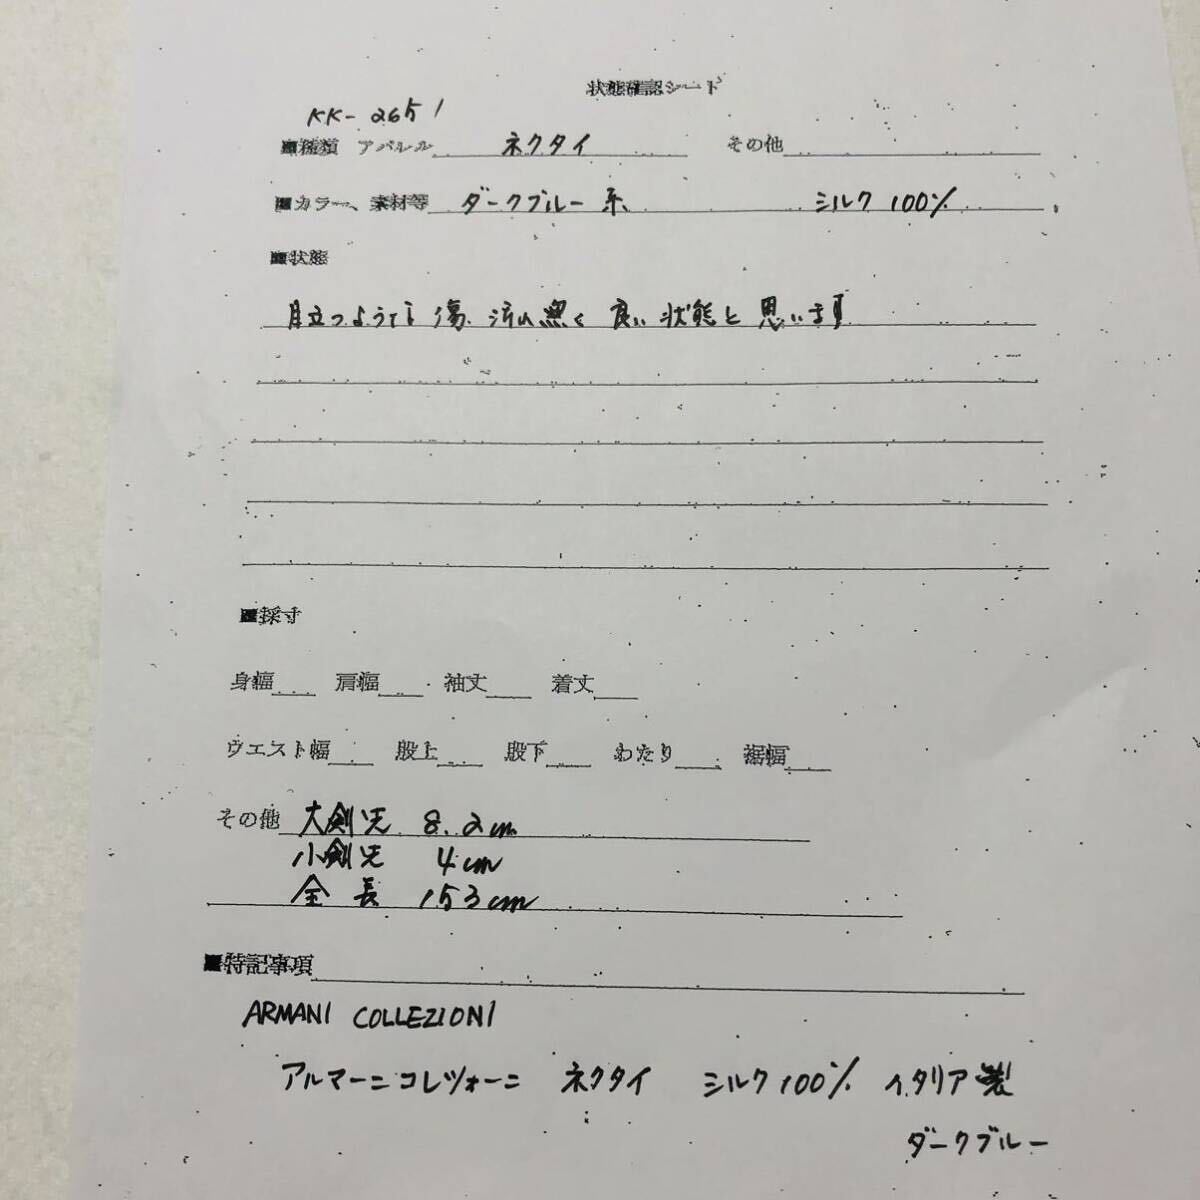 状態確認シート
KK-2651
■種類 アパレル ネクタイ その他
■カラー、素材等 ダークブルー系 シルク 100%
■状態
目立つような傷、汚れ無く 良い状態と思います
■採寸
身幅 肩幅 袖丈 着丈
ウエスト幅 股上 股下 わたり 裾幅
その他 大剣先 8.2cm
小剣先 4cm
全長 153cm
■特記事項
ARMANI COLLEZIONI
アルマーニコレツォーニ ネクタイ シルク100% イタリア製
ダークブルー